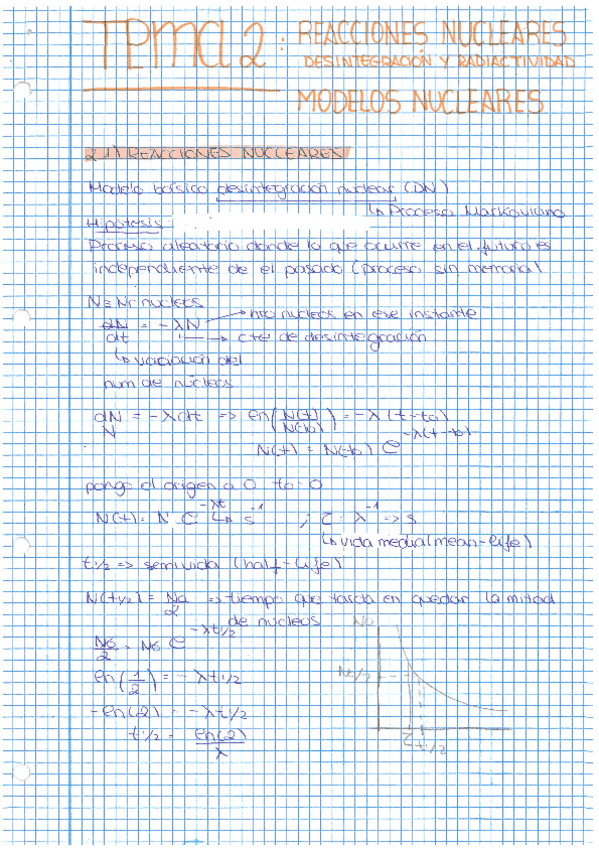 TEMA 2: REACCIONES NUCLEARES
DESINTEGRACIÓN Y RADIACTIVIDAD
MODELOS NUCLEARES
2.1) REACCIONES NUCLEARES
Modelo básico desintegración nuclear (DN)
↳ Proceso Markoviano
Hipótesis:
Proceso aleatorio donde lo que ocurre en el futuro es
independiente de el pasado (proceso sin memoria)
N ≡ Nr nucleos
dN/dt = -λN → nro nucleos en ese instante
→ cte de desintegración
↳ variación del
num de nucleos
dN/N = -λdt => ln(N(t)/N(to)) = -λ(t-to)
N(t) = N(to) e^-λ(t-to)
pongo el origen a 0 to=0
N(t) = N e^-λt ↳ s^-1 ; τ = λ^-1 => s
↳ vida media (mean-life)
t1/2 => semivida (half-life)
N(t1/2) = No/2 => tiempo que tarda en quedar la mitad
de nucleos
No/2 = No e^-λt1/2
ln(1/2) = -λt1/2
-ln(2) = -λt1/2
t1/2 = ln(2)/λ
No
No/2
τ t1/2